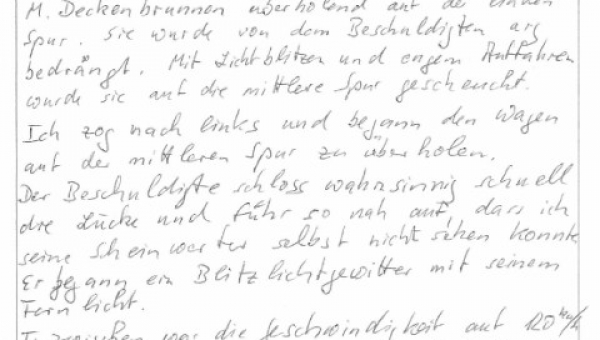 M. Deckenbrunnen überholend auf der linken
Spur. Sie wurde von dem Beschuldigten arg
bedrängt. Mit Lichtblitzen und engem Auffahren
wurde sie auf die mittlere Spur gescheucht.
Ich zog nach links und begann den Wagen
auf der mittleren Spur zu überholen.
Der Beschuldigte schloss wahnsinnig schnell
die Lücke und fuhr so nah auf, dass ich
seine Scheinwerfer selbst nicht sehen konnte
Er begann ein Blitzlichtgewitter mit seinem
Fernlicht.
Inzwischen war die Geschwindigkeit auf 120 km/h